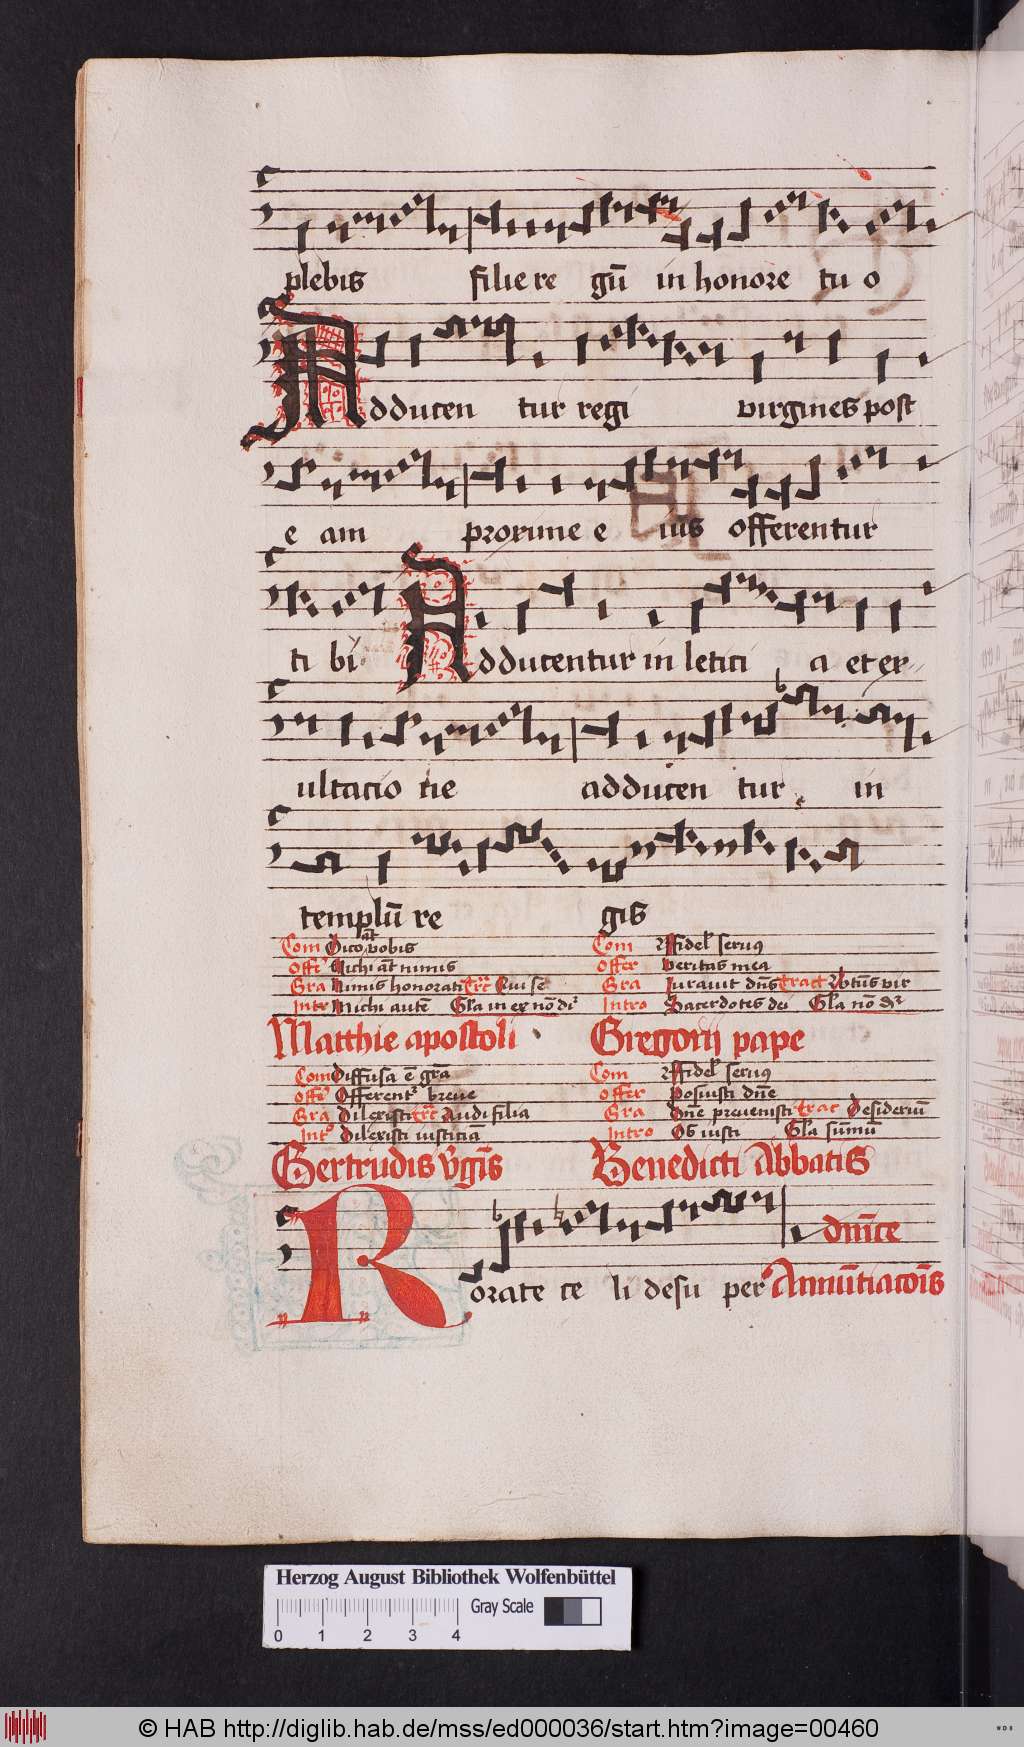 plebis filie re gū in honore tu o
Adducen tur regi virgines post
e am proxime e ius offerentur
ti bi Adducentur in letici a et ex
ultacio ne adducen tur in
templū re gis
Com Dico aūt vobis
Offer Michi aūt nimis
Gra Nimis honorati Trc Qui se
Intr Michi autē Gla in ex nō di
Matthie apostoli
Com Fidel seruus
Offer Veritas mea
Gra Jurauit dns Tract Btus vir
Intro Sacerdotes dei Gla nō dr
Gregorij pape
Com Diffusa ē gra
Offer Offerent
Gra Dilexisti Trc Audi filia
Int Dilexisti iusticiā
Gertrudis vgīs
Com Fidel seruus
Offer Posuisti dne
Gra Dne preuenisti Trac Desideriū
Intro Os iusti Gla sūmū
Benedicti Abbatis
Rorate ce li desu per
dnīce
Annūtiacoīs
Herzog August Bibliothek Wolfenbüttel
Gray Scale
0 1 2 3 4
© HAB http://diglib.hab.de/mss/ed000036/start.htm?image=00460